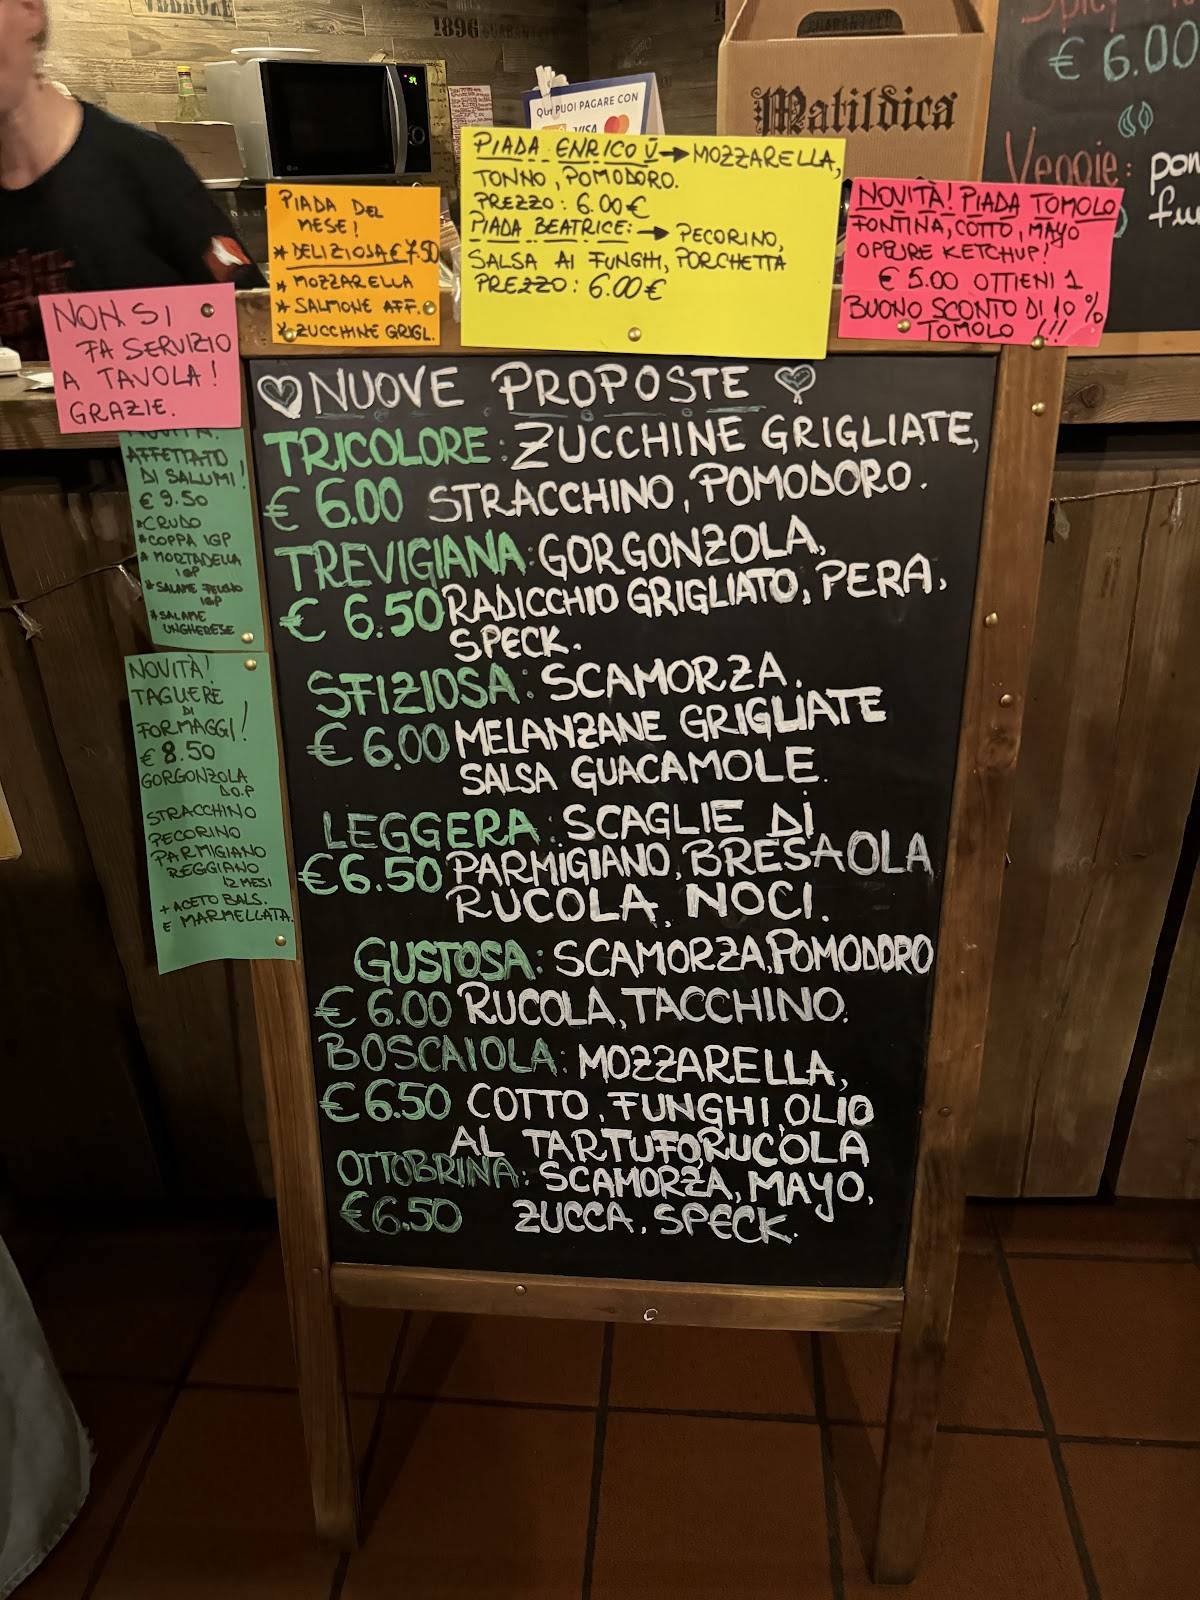 1896 GUARANTEED
GUARANTEED
QUI PUOI PAGARE CON
VISA
Matildica
€ 6.00
Veggie: pon
fu
PIADA DEL
MESE!
* DELIZIOSA € 7.50
* MOZZARELLA
* SALMONE AFF.
* ZUCCHINE GRIGL.
PIADA ENRICO V → MOZZARELLA,
TONNO, POMODORO.
PREZZO: 6.00€
PIADA BEATRICE: → PECORINO,
SALSA AI FUNGHI, PORCHETTA
PREZZO: 6.00€
NOVITÀ! PIADA TOMOLO
FONTINA, COTTO, MAYO
OPPURE KETCHUP!
€ 5.00 OTTIENI 1
BUONO SCONTO DI 10%
TOMOLO !!!
NON SI
FA SERVIZIO
A TAVOLA!
GRAZIE.
NOVITÀ!
AFFETTATO
DI SALUMI!
€ 9.50
*CRUDO
*COPPA IGP
*MORTADELLA
IGP
*SALAME FELINO
IGP
*SALAME
UNGHERESE
NOVITÀ!
TAGLIERE
DI
FORMAGGI!
€ 8.50
GORGONZOLA
D.O.P
STRACCHINO
PECORINO
PARMIGIANO
REGGIANO
12 MESI
+ ACETO BALS.
E MARMELLATA.
NUOVE PROPOSTE
TRICOLORE: ZUCCHINE GRIGLIATE,
€ 6.00 STRACCHINO, POMODORO.
TREVIGIANA: GORGONZOLA,
€ 6.50 RADICCHIO GRIGLIATO, PERA,
SPECK.
SFIZIOSA: SCAMORZA,
€ 6.00 MELANZANE GRIGLIATE
SALSA GUACAMOLE.
LEGGERA: SCAGLIE DI
€6.50 PARMIGIANO, BRESAOLA
RUCOLA, NOCI.
GUSTOSA: SCAMORZA, POMODORO
€ 6.00 RUCOLA, TACCHINO.
BOSCAIOLA: MOZZARELLA,
€ 6.50 COTTO, FUNGHI, OLIO
AL TARTUFO RUCOLA
OTTOBRINA: SCAMORZA, MAYO,
€6.50 ZUCCA, SPECK.